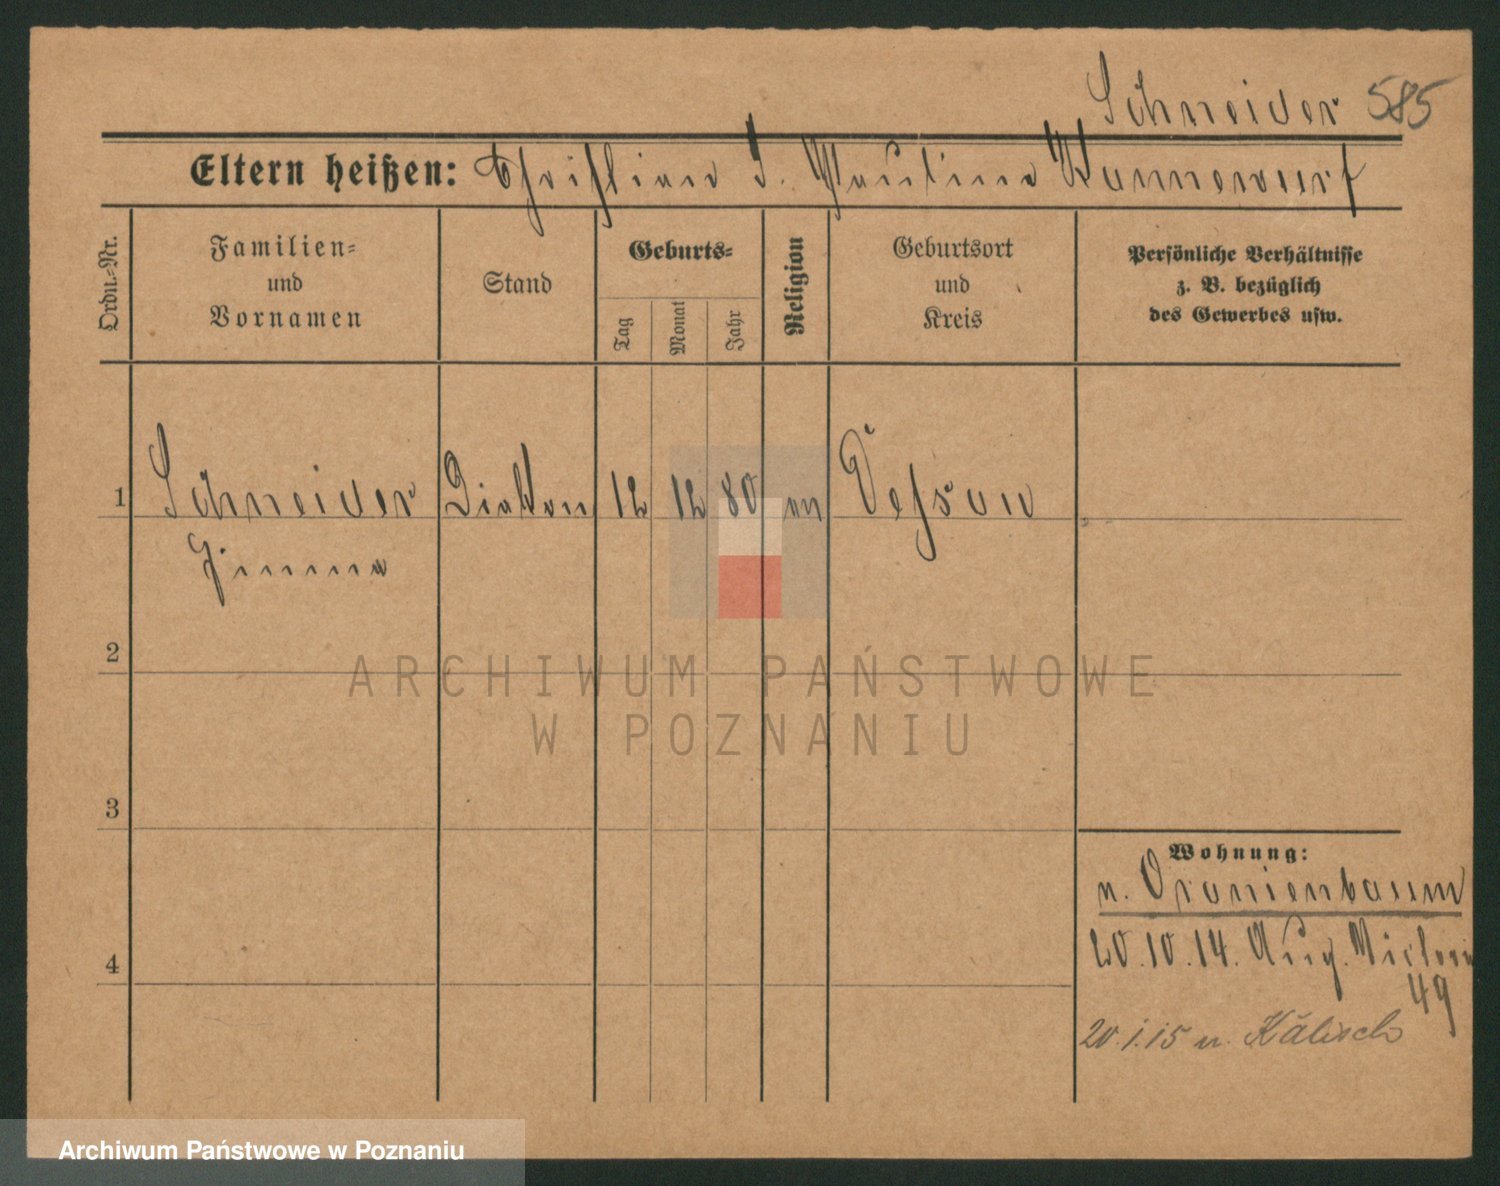 Schneider 585
Eltern heißen: Christian J. Pauline Wannewurf
Ordn.-Nr.
Familien-
und
Vornamen
Stand
Geburts-
Tag
Monat
Jahr
Religion
Geburtsort
und
Kreis
Persönliche Verhältnisse
z. B. bezüglich
des Gewerbes usw.
1 Schneider Diakon 12 12 80 ev Dessau
2
3
4
ARCHIWUM PAŃSTWOWE
W POZNANIU
Wohnung:
n. Oranienbaum
20.10.14. Aug. Victoria
49
20.1.15 n. Kälisch
Archiwum Państwowe w Poznaniu